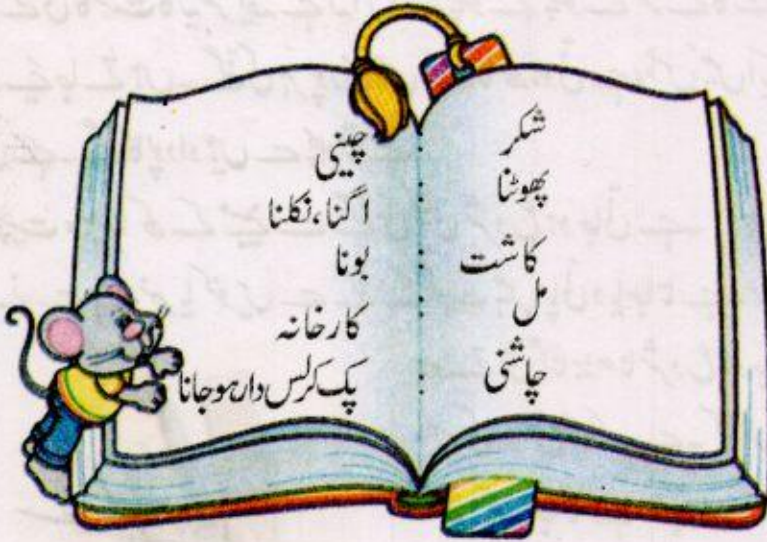 شکر : چینی
پھوٹنا : اگنا، نکلنا
کاشت : بونا
مل : کارخانہ
چاشنی : پک کر لس دار ہو جانا